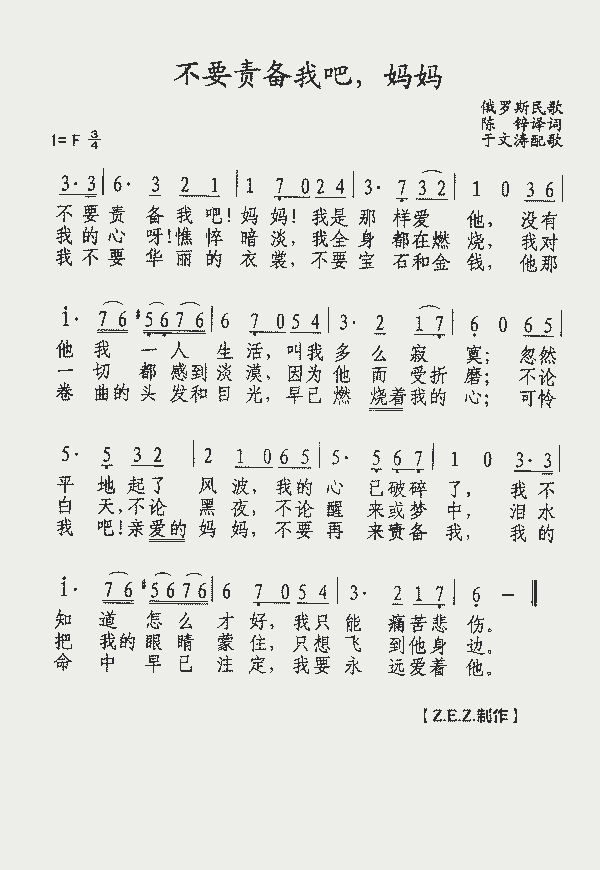 不要责备我吧，妈妈
俄罗斯民歌
陈 锌译词
1= F 3/4 于文涛配歌
3· 3 | 6· 3 2 1 | 1 7 0 2 4 | 3· 7 3 2 | 1 0 3 6 |
不要责 备我吧！妈妈！我是那 样爱 他，没有
我的心 呀！憔悴暗淡，我全身 都在燃烧，我对
我不要 华丽的衣裳，不要宝 石和金钱，他那
1· 7 6 #5 6 7 6 | 6 7 0 5 4 | 3· 2 1 7 | 6 0 6 5 |
他 我 一人 生活，叫我多 么 寂 寞；忽然
一 切 都感到淡漠，因为他 面 受折磨；不论
卷 曲的头发和目光，早已燃 烧着我的心；可怜
5· 5 3 2 | 2 1 0 6 5 | 5· 5 6 7 | 1 0 3· 3 |
平 地起了 风波，我的心 已破碎了，我不
白 天，不论 黑夜，不论醒 来或梦中，泪水
我 吧！亲爱的妈妈，不要再 来责备我，我的
1· 7 6 #5 6 7 6 | 6 7 0 5 4 | 3· 2 1 7 | 6 –
知 道 怎么 才好，我只能 痛苦悲伤。
把 我的眼睛 蒙住，只想飞 到他身边。
命 中 早已 注定，我要永 远爱着他。
【Z.E.Z.制作】